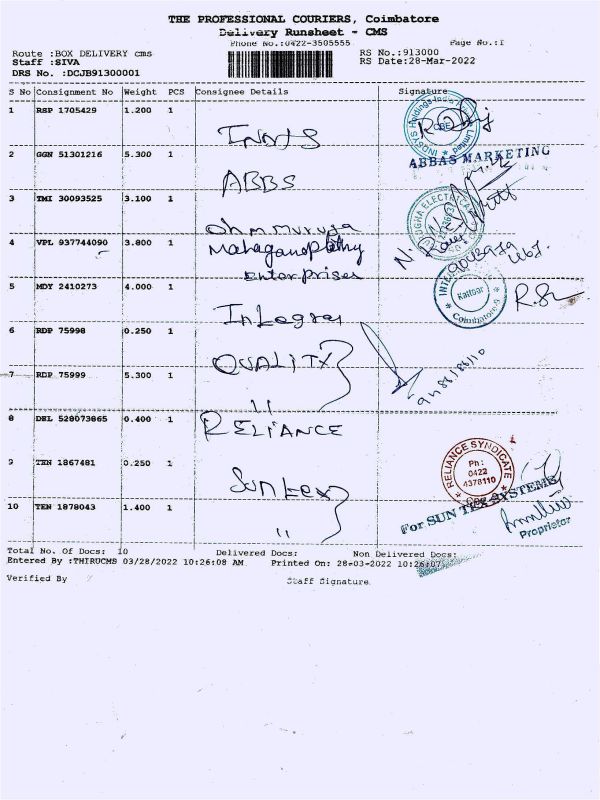 THE PROFESSIONAL COURIERS, Coimbatore
Delivery Runsheet - CMS
Phone No.:0422-3505555 Page No.:1
Route :BOX DELIVERY cms RS No.:913000
Staff :SIVA RS Date:28-Mar-2022
DRS No. :DCJB91300001
S No Consignment No Weight PCS Consignee Details Signature
1 RSP 1705429 1.200 1
INDSYS Holdings India Limited
CBE
2 GGN 51301216 5.300 1 ABBS
ABBAS MARKETING
3 TMI 30093525 3.100 1 Ohm muruga
4 VPL 937744090 3.800 1 Mahaganapathy
Enterprises
5 MDY 2410273 4.000 1 Integra
Kattoor
Coimbatore-9
6 RDP 75998 0.250 1 QUALITY
7 RDP 75999 5.300 1 "
8 DEL 528073865 0.400 1 RELIANCE
RELIANCE SYNDICATE
Ph:
0422
4378110
9 TEN 1867481 0.250 1 Suntex
For SUN TEX SYSTEMS
Proprietor
10 TEN 1878043 1.400 1 "
Total No. Of Docs: 10 Delivered Docs: Non Delivered Docs:
Entered By :THIRUCMS 03/28/2022 10:26:08 AM Printed On: 28-03-2022 10:26:07
Verified By Staff Signature